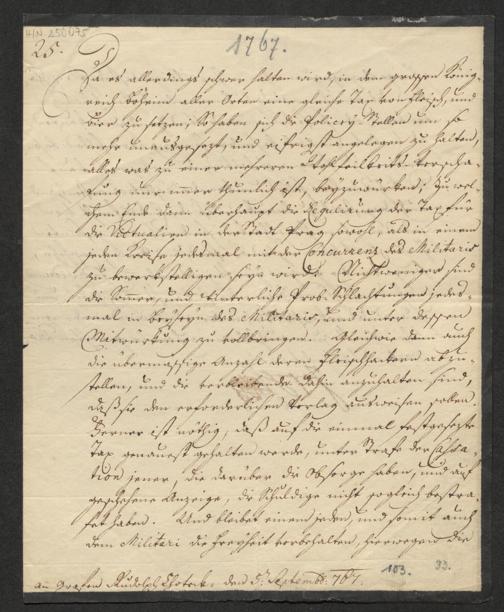 HIN-250075
25.
1767.
Da es allerdings schwer halten wird, in dem grossen König-
reich Böheim aller Orten eine gleiche Tax von Fleisch, und
Bier zu setzen; So haben sich die Policey-Stellen um so
mehr unausgesezt, und eifrigst angelegen zu halten,
alles was zu einer mehreren Wohlfeilkeits-Verscha-
fung nur immer thunlich ist, beyzuwürken; Zu wel-
chem Ende dann überhaupt die Regulirung der Tax für
die Victualien in der Stadt Prag sowohl, als in einem
jeden Kreise jedesmal mit der Concurrenz des Militaris
zu bewerkstelligen seyn wird. Nichtweniger sind
die Sommer- und Winterliche Prob-Schlachtungen jedes-
mal in beyseyn des Militaris, und unter dessen
Mitwürkung zu vollbringen. Gleichwie dann auch
die übermässige Anzahl deren Fleischhackern abzu-
stellen, und die verbleibende dahin anzuhalten sind,
daß sie den erforderlichen Verlag ausweisen sollen.
Ferner ist nöthig, daß auf die einmal festgesezte
Tax genauest gehalten werde, unter Strafe der Cassa-
tion jener, die darüber die Obsorge haben, und auf
geschehene Anzeige, die Schuldige nicht sogleich bestra-
fet haben. Und bleibet einem jeden, und somit auch
dem Militari die Freyheit vorbehalten, hierwegen die
an Grafen Rudolph Chotek den 5. Septemb. 767.
103.
33.